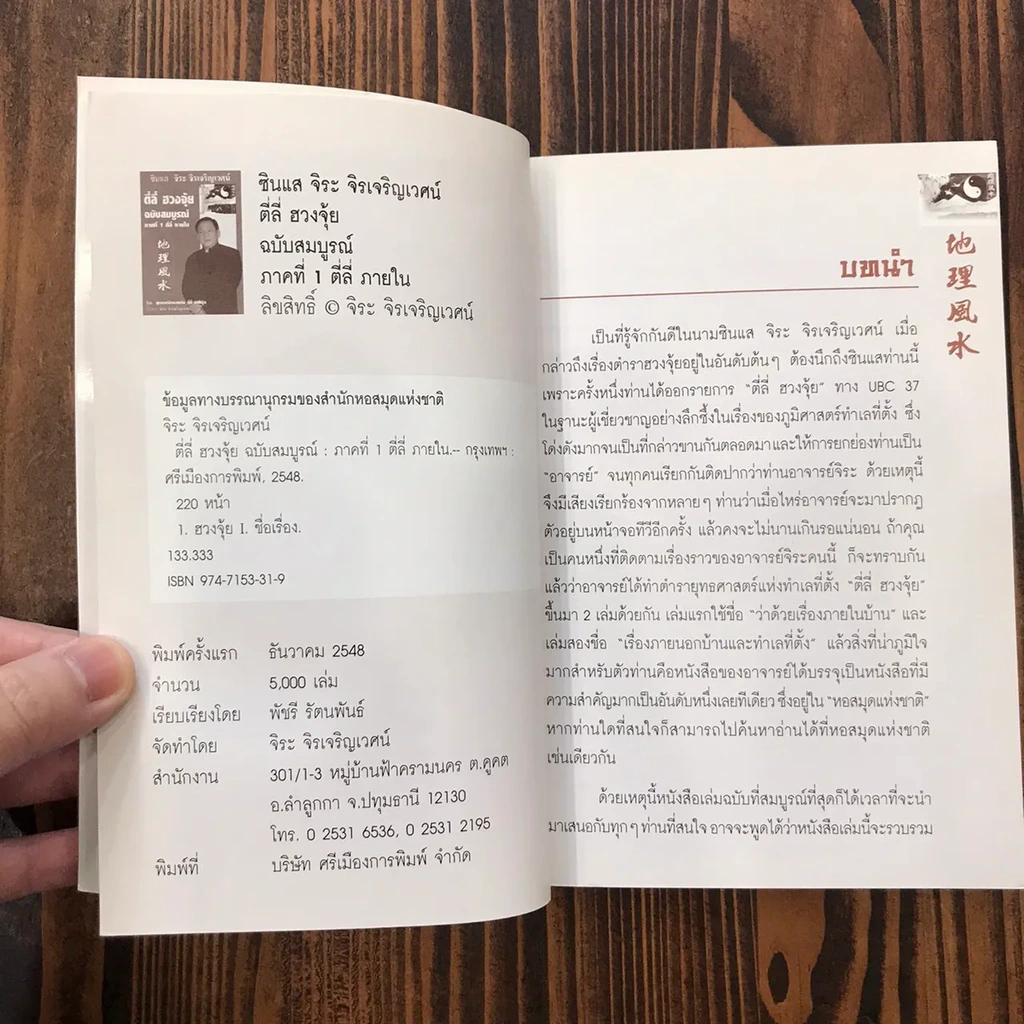 ซินแส จิระ จิรเจริญเวศน์
ตี่ลี่ ฮวงจุ้ย
ฉบับสมบูรณ์
ภาคที่ 1 ตี่ลี่ ภายใน
地理風水
ซินแส จิระ จิรเจริญเวศน์
ตี่ลี่ ฮวงจุ้ย
ฉบับสมบูรณ์
ภาคที่ 1 ตี่ลี่ ภายใน
ลิขสิทธิ์ © จิระ จิรเจริญเวศน์
ข้อมูลทางบรรณานุกรมของสำนักหอสมุดแห่งชาติ
จิระ จิรเจริญเวศน์
ตี่ลี่ ฮวงจุ้ย ฉบับสมบูรณ์ : ภาคที่ 1 ตี่ลี่ ภายใน.-- กรุงเทพฯ :
ศรีเมืองการพิมพ์, 2548.
220 หน้า
1. ฮวงจุ้ย I. ชื่อเรื่อง.
133.333
ISBN 974-7153-31-9
พิมพ์ครั้งแรก ธันวาคม 2548
จำนวน 5,000 เล่ม
เรียบเรียงโดย พัชรี รัตนพันธ์
จัดทำโดย จิระ จิรเจริญเวศน์
สำนักงาน 301/1-3 หมู่บ้านฟ้าครามนคร ต.คูคต
อ.ลำลูกกา จ.ปทุมธานี 12130
โทร. 0 2531 6536, 0 2531 2195
พิมพ์ที่ บริษัท ศรีเมืองการพิมพ์ จำกัด
地理風水
บทนำ
เป็นที่รู้จักกันดีในนามซินแส จิระ จิรเจริญเวศน์ เมื่อ
กล่าวถึงเรื่องตำราฮวงจุ้ยอยู่ในอันดับต้นๆ ต้องนึกถึงซินแสท่านนี้
เพราะครั้งหนึ่งท่านได้ออกรายการ "ตี่ลี่ ฮวงจุ้ย" ทาง UBC 37
ในฐานะผู้เชี่ยวชาญอย่างลึกซึ้งในเรื่องของภูมิศาสตร์ทำเลที่ตั้ง ซึ่ง
โด่งดังมากจนเป็นที่กล่าวขานกันตลอดมาและให้การยกย่องท่านเป็น
"อาจารย์" จนทุกคนเรียกกันติดปากว่าท่านอาจารย์จิระ ด้วยเหตุนี้
จึงมีเสียงเรียกร้องจากหลายๆ ท่านว่าเมื่อไหร่อาจารย์จะมาปรากฏ
ตัวอยู่บนหน้าจอทีวีอีกครั้ง แล้วคงจะไม่นานเกินรอแน่นอน ถ้าคุณ
เป็นคนหนึ่งที่ติดตามเรื่องราวของอาจารย์จิระคนนี้ ก็จะทราบกัน
แล้วว่าอาจารย์ได้ทำตำรายุทธศาสตร์แห่งทำเลที่ตั้ง "ตี่ลี่ ฮวงจุ้ย"
ขึ้นมา 2 เล่มด้วยกัน เล่มแรกใช้ชื่อ "ว่าด้วยเรื่องภายในบ้าน" และ
เล่มสองชื่อ "เรื่องภายนอกบ้านและทำเลที่ตั้ง" แล้วสิ่งที่น่าภูมิใจ
มากสำหรับตัวท่านคือหนังสือของอาจารย์ได้บรรจุเป็นหนังสือที่มี
ความสำคัญมากเป็นอันดับหนึ่งเลยทีเดียว ซึ่งอยู่ใน "หอสมุดแห่งชาติ"
หากท่านใดที่สนใจก็สามารถไปค้นหาอ่านได้ที่หอสมุดแห่งชาติ
เช่นเดียวกัน
ด้วยเหตุนี้หนังสือเล่มฉบับที่สมบูรณ์ที่สุดก็ได้เวลาที่จะนำ
มาเสนอกับทุกๆ ท่านที่สนใจ อาจจะพูดได้ว่าหนังสือเล่มนี้จะรวบรวม